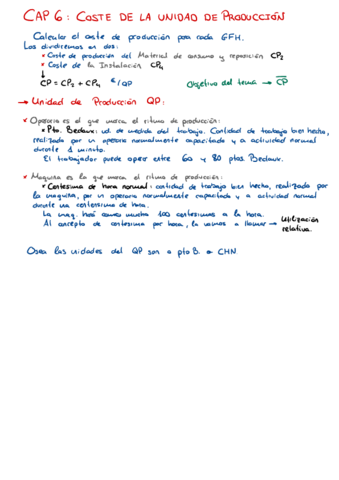 CAP 6: COSTE DE LA UNIDAD DE PRODUCCIÓN
Calcular el coste de producción para cada GFH.
Los dividiremos en dos:
* Coste de producción del Material de consumo y reposición CP2
* Coste de la Instalación CP4
↓
CP = CP2 + CP4 €/QP Objetivo del tema → CP
→ Unidad de Producción QP:
* Operario es el que marca el ritmo de producción:
* Pto. Bedaux: ud. de medida del trabajo. Cantidad de trabajo bien hecho,
realizado por un operario normalmente capacitado y a actividad normal
durante 1 minuto.
El trabajador puede operar entre 60 y 80 ptos Bedaux.
* Maquina es la que marca el ritmo de producción:
* Centesima de hora normal: cantidad de trabajo bien hecho, realizado por
la maquina, por un operario normalmente capacitado y a actividad normal
durante una centesima de hora.
La maq. hará como mucho 100 centesimas a la hora.
Al concepto de centesima por hora, la vamos a llamar → Utilización
relativa.
Osea las unidades del QP son o pto B. o CHN